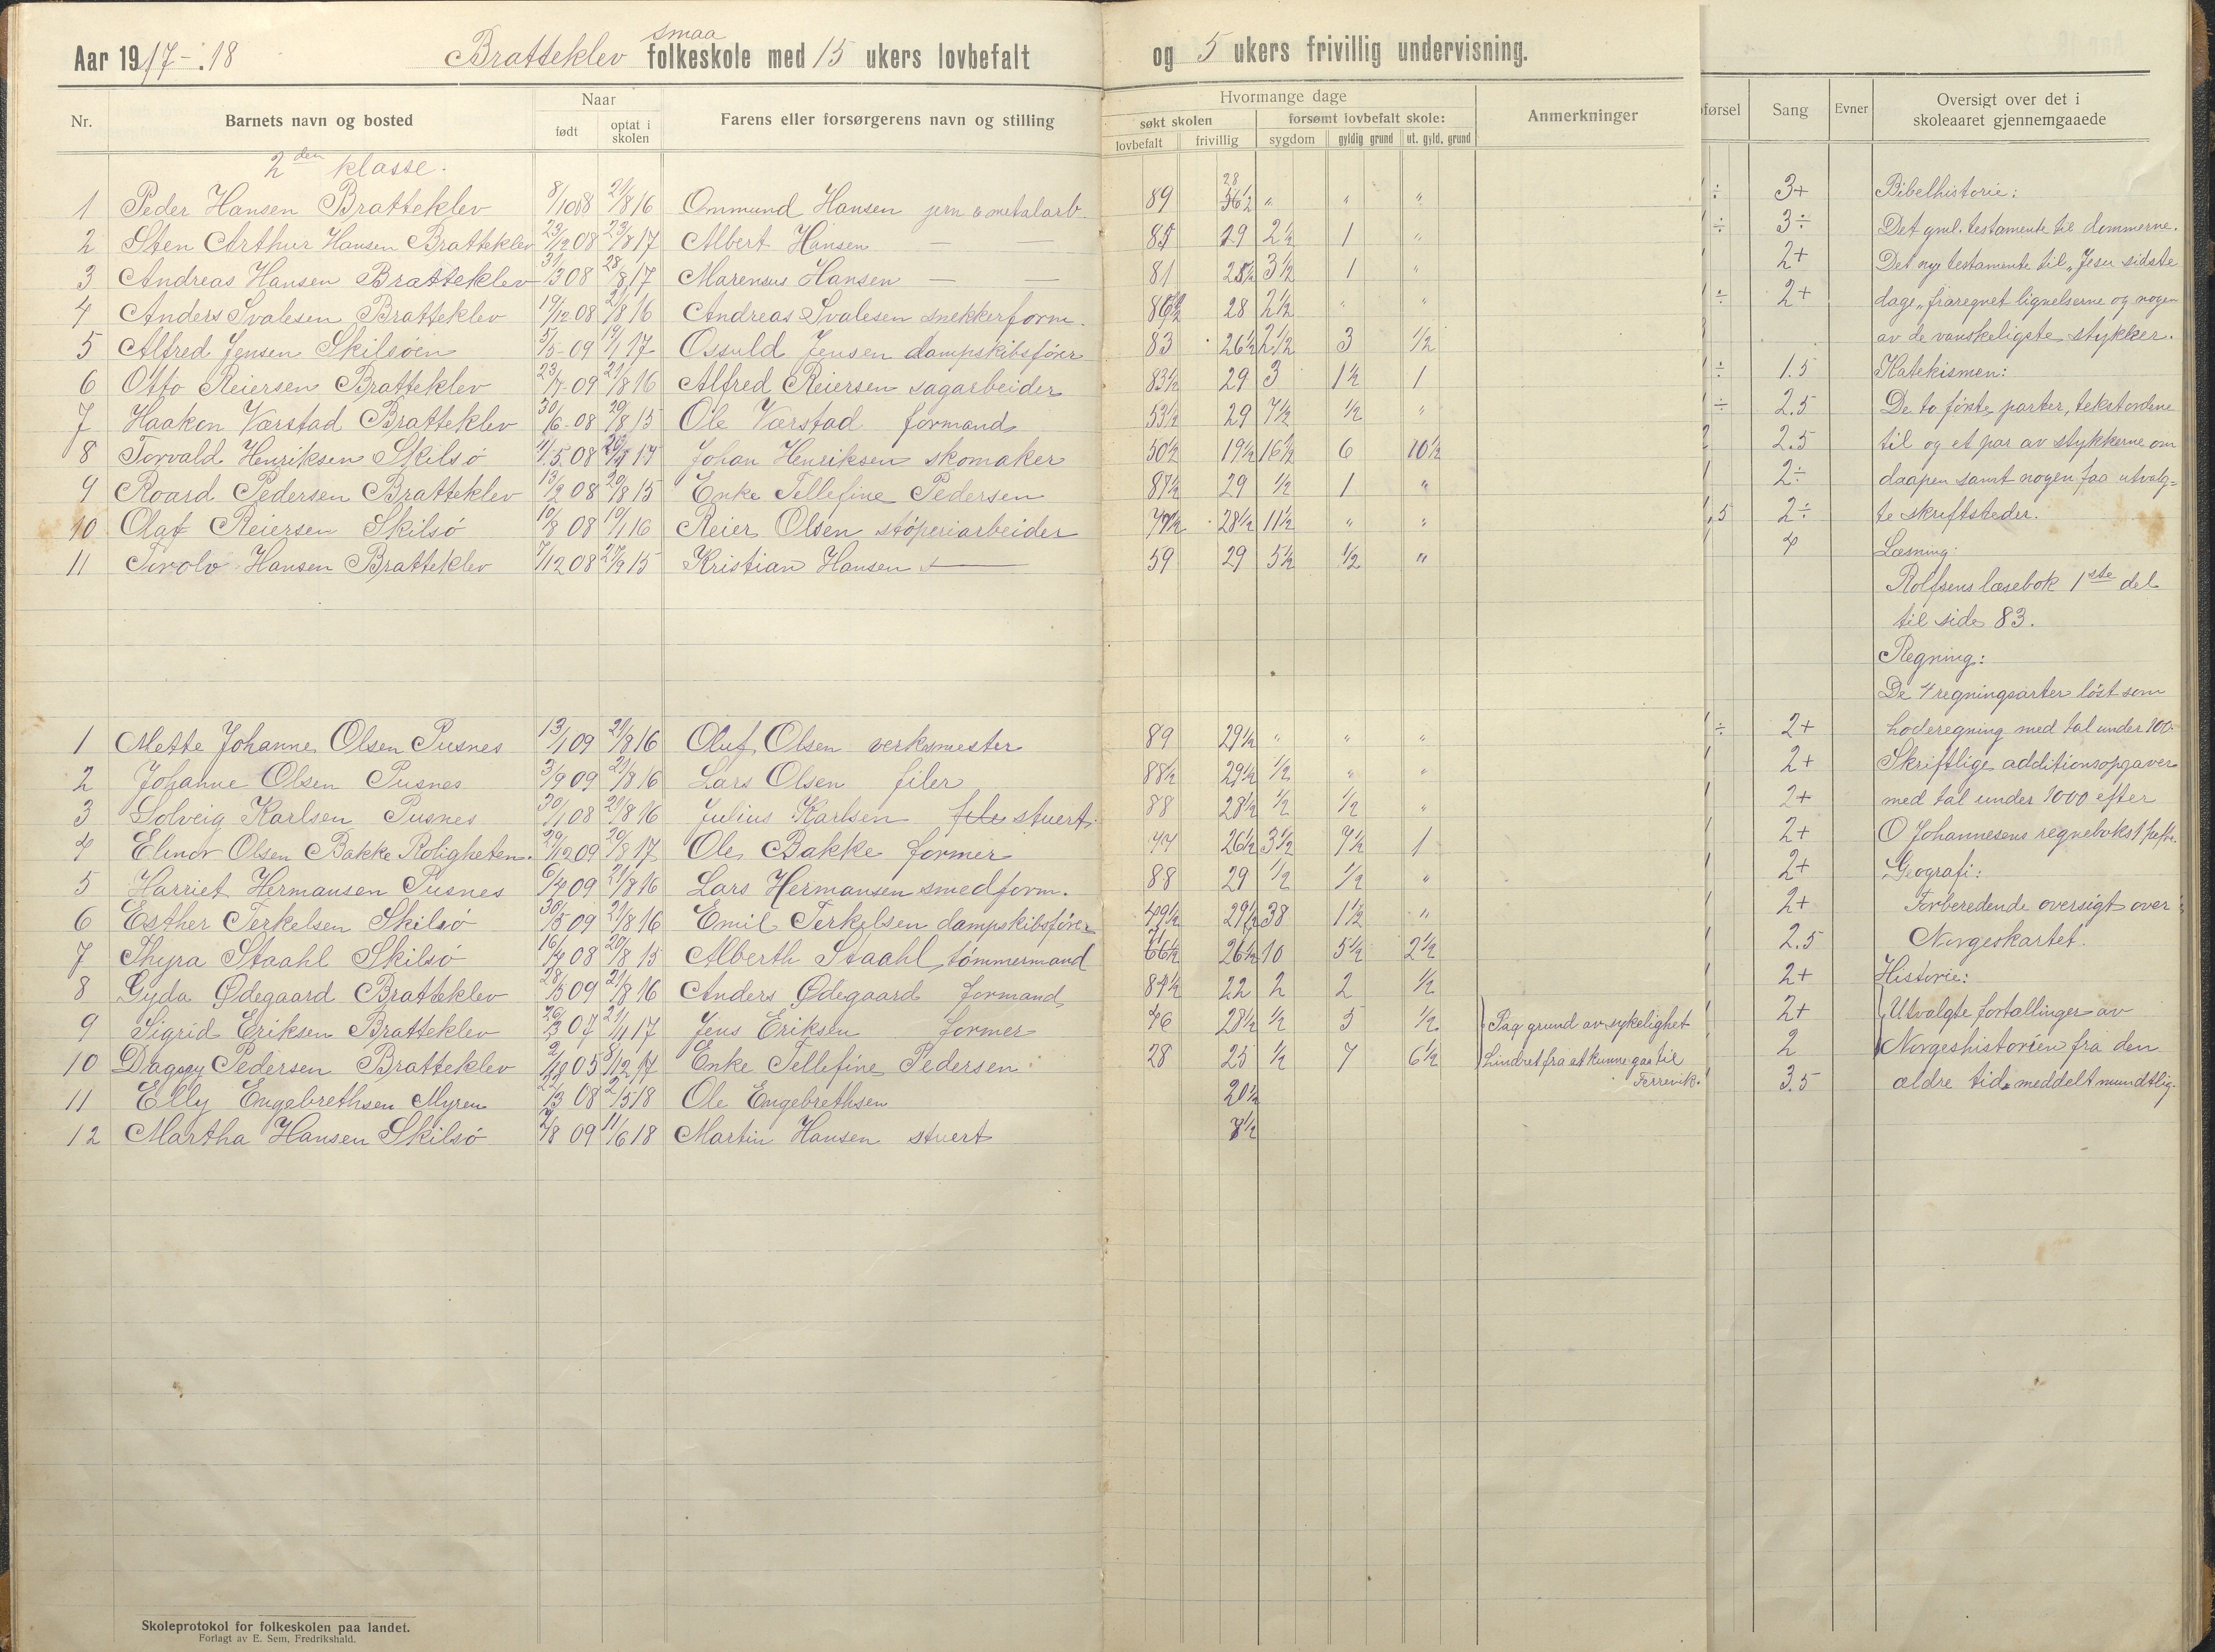 Aar 1917-18 Bratteklev smaa folkeskole med 15 ukers lovbefalt og 5 ukers frivillig undervisning.
Nr. Barnets navn og bosted Naar født optat i skolen Farens eller forsørgerens navn og stilling Hvormange dage søkt skolen lovbefalt frivillig forsømt lovbefalt skole: sygdom gyldig grund ut. gyld. grund Anmerkninger førsel Sang Evner Oversigt over det i skoleaaret gjennemgaaede
2den klasse.
1 Peder Hansen Bratteklev 8/10 08 21/8 16 Ommund Hansen jern & metalarb. 89 28 " " " ÷ 3+ Bibelhistorie:
2 Sten Arthur Hansen Bratteklev 23/12 08 23/8 17 Albert Hansen — — 85 29 2½ 1 " ÷ 3÷ Det gml. testamente til dommerne.
3 Andreas Hansen Bratteklev 31/3 08 28/8 17 Marensus Hansen — — 81 28½ 3½ 1 " 2+ Det nye testamente til "Jesu sidste
4 Anders Svalesen Bratteklev 19/12 08 21/8 16 Andreas Svalesen snekkerform. 86½ 28 2½ " " ÷ 2+ dage" fraregnet lignelserne og nogen
5 Alfred Jensen Skilsøen 5/5-09 19/1 17 Ossuld Jensen dampskibsfører 83 26½ 2½ 3 ½ av de vanskeligste stykker.
6 Otto Reiersen Bratteklev 23/7-09 21/8 16 Alfred Reiersen sagarbeider 83½ 29 3 1½ 1 ÷ 1.5 Katekismen:
7 Haakon Værstad Bratteklev 30/6-08 20/8 15 Ole Værstad formand 53½ 29 7½ ½ " ÷ 2.5 De to første parter, tekstordene
8 Torvald Henriksen Skilsø 11/5 08 Johan Henriksen skomaker 50½ 19½ 16½ 6 10½ 2.5 til og et par av stykkerne om
9 Roard Pedersen Bratteklev 13/2 08 20/8 15 Enke Tellefine Pedersen 87½ 29 ½ 1 " 2÷ daapen samt nogen faa utvalg=
10 Olaf Reiersen Skilsø 10/8 08 19/1 16 Reier Olsen støperiarbeider 77½ 28½ 11½ " " .5 2÷ te skriftsteder.
11 Torolv Hansen Bratteklev 7/12 08 Kristian Hansen — 59 29 5½ ½ " 4 Læsning:
Rolfsens læsebok 1ste del
til side 83.
Regning:
De 4 regningsarter løst som
1 Mette Johanne Olsen Pusnes 13/1 09 21/8 16 Oluf Olsen verksmester 89 29½ " " " ÷ 2+ hoderegning med tal under 100.
2 Johanne Olsen Pusnes 3/9 09 21/8 16 Lars Olsen filer 88½ 29½ ½ " " 2+ Skriftlige additionsopgaver
3 Solveig Karlsen Pusnes 30/1 08 21/8 16 Julius Karlsen stuert. 88 28½ ½ ½ " 2+ med tal under 1000 efter
4 Elinor Olsen Bakke Roligheten. 29/12 09 20/8 17 Ole Bakke former 77 26½ 3½ 7½ 1 2+ O Johannesens regneboks 1 hefte.
5 Harriet Hermansen Pusnes 6/4 09 21/8 16 Lars Hermansen smedform. 88 29 ½ ½ " 2+ Geografi:
6 Esther Terkelsen Skilsø 30/5 09 21/8 16 Emil Terkelsen dampskibsfører 49½ 29½ 38 1½ " 2+ Forberedende oversigt over
7 Thyra Staahl Skilsø 16/4 08 20/8 15 Alberth Staahl tømmermand 71 66½ 26½ 10 5½ 2½ 2.5 Norgeskartet.
8 Gyda Ødegaard Bratteklev 28/5 09 21/8 16 Anders Ødegaard formand 84½ 22 2 2 ½ 2+ Historie:
9 Sigrid Eriksen Bratteklev 26/3 07 Jens Eriksen former 76 28½ ½ 5 ½ Paa grund av sykelighet 2+ Utvalgte fortællinger av
10 Dagny Pedersen Bratteklev 8/12 17 Enke Tellefine Pedersen 28 25 ½ 7 6½ hindret fra at kunne gaa til 2 Norgeshistorien fra den
Færevik.
11 Elly Engebrethsen Myren 22/3 08 2/5 18 Ole Engebrethsen 20½ 3.5 ældre tid meddelt mundtlig.
12 Martha Hansen Skilsø 2/8 09 11/6 18 Martin Hansen stuert 8½
Skoleprotokol for folkeskolen paa landet.
Forlagt av E. Sem, Fredrikshald.